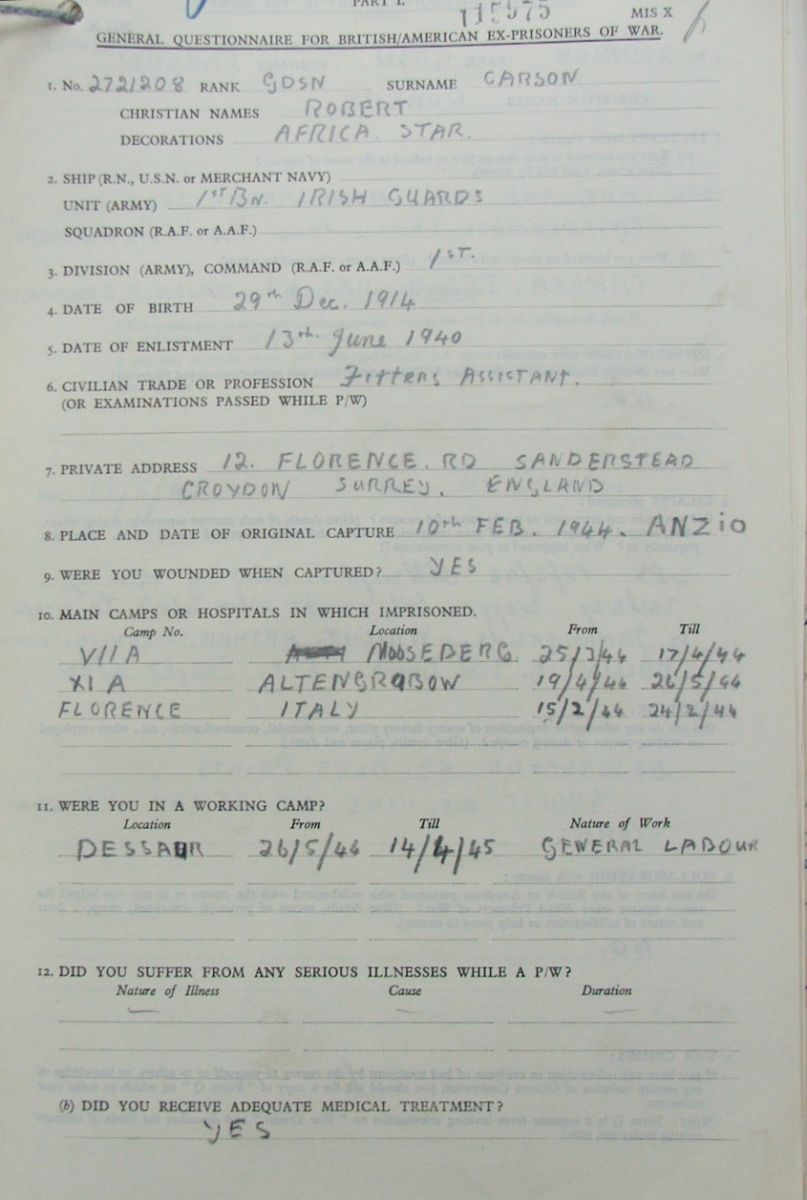 PART I.
115975
MIS X
GENERAL QUESTIONNAIRE FOR BRITISH/AMERICAN EX-PRISONERS OF WAR.
1. No. 2721208 RANK GDSN SURNAME CARSON
CHRISTIAN NAMES ROBERT
DECORATIONS AFRICA STAR.
2. SHIP (R.N., U.S.N. or MERCHANT NAVY)
UNIT (ARMY) 1ST BN. IRISH GUARDS
SQUADRON (R.A.F. or A.A.F.)
3. DIVISION (ARMY), COMMAND (R.A.F. or A.A.F.) 1ST.
4. DATE OF BIRTH 29th Dec. 1914
5. DATE OF ENLISTMENT 13th. June 1940
6. CIVILIAN TRADE OR PROFESSION Fitters Assistant.
(OR EXAMINATIONS PASSED WHILE P/W)
7. PRIVATE ADDRESS 12. FLORENCE. RD SANDERSTEAD
CROYDON SURREY. ENGLAND
8. PLACE AND DATE OF ORIGINAL CAPTURE 10th FEB. 1944. ANZIO
9. WERE YOU WOUNDED WHEN CAPTURED? YES
10. MAIN CAMPS OR HOSPITALS IN WHICH IMPRISONED.
Camp No. Location From Till
VIIA MOOSEBERG 25/3/44 17/4/44
XI A ALTENGRABOW 19/4/44 26/5/44
FLORENCE ITALY 15/2/44 24/2/44
11. WERE YOU IN A WORKING CAMP?
Location From Till Nature of Work
DESSAUR 26/5/44 14/4/45 GENERAL LABOUR
12. DID YOU SUFFER FROM ANY SERIOUS ILLNESSES WHILE A P/W?
Nature of Illness Cause Duration
(b) DID YOU RECEIVE ADEQUATE MEDICAL TREATMENT?
YES